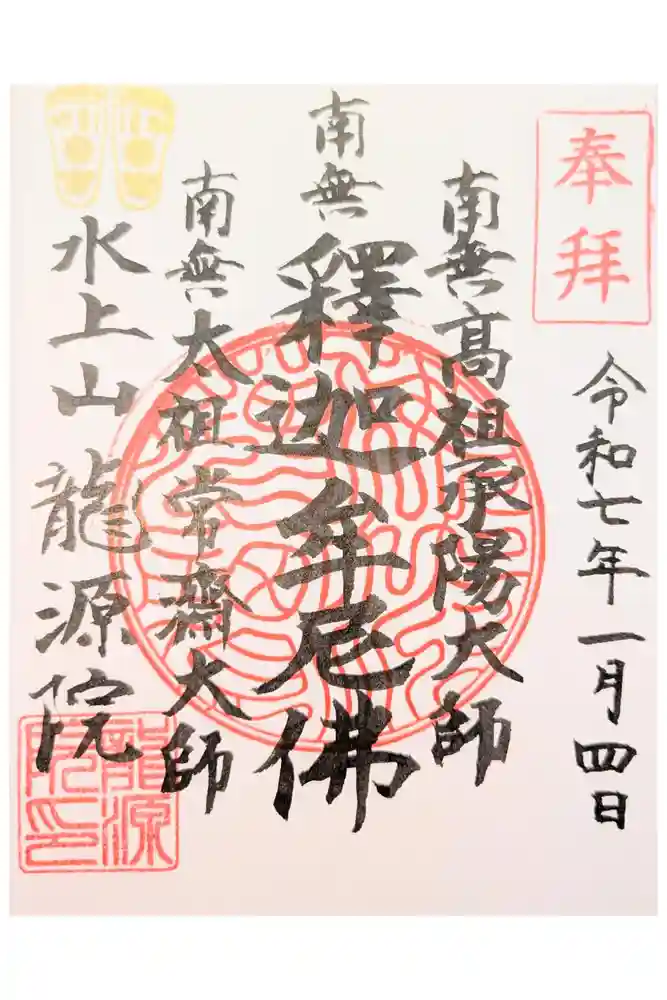 奉拝
令和七年一月四日
南無高祖承陽大師
南無釋迦牟尼佛
南無太祖常齋大師
水上山龍源院
龍源
院印